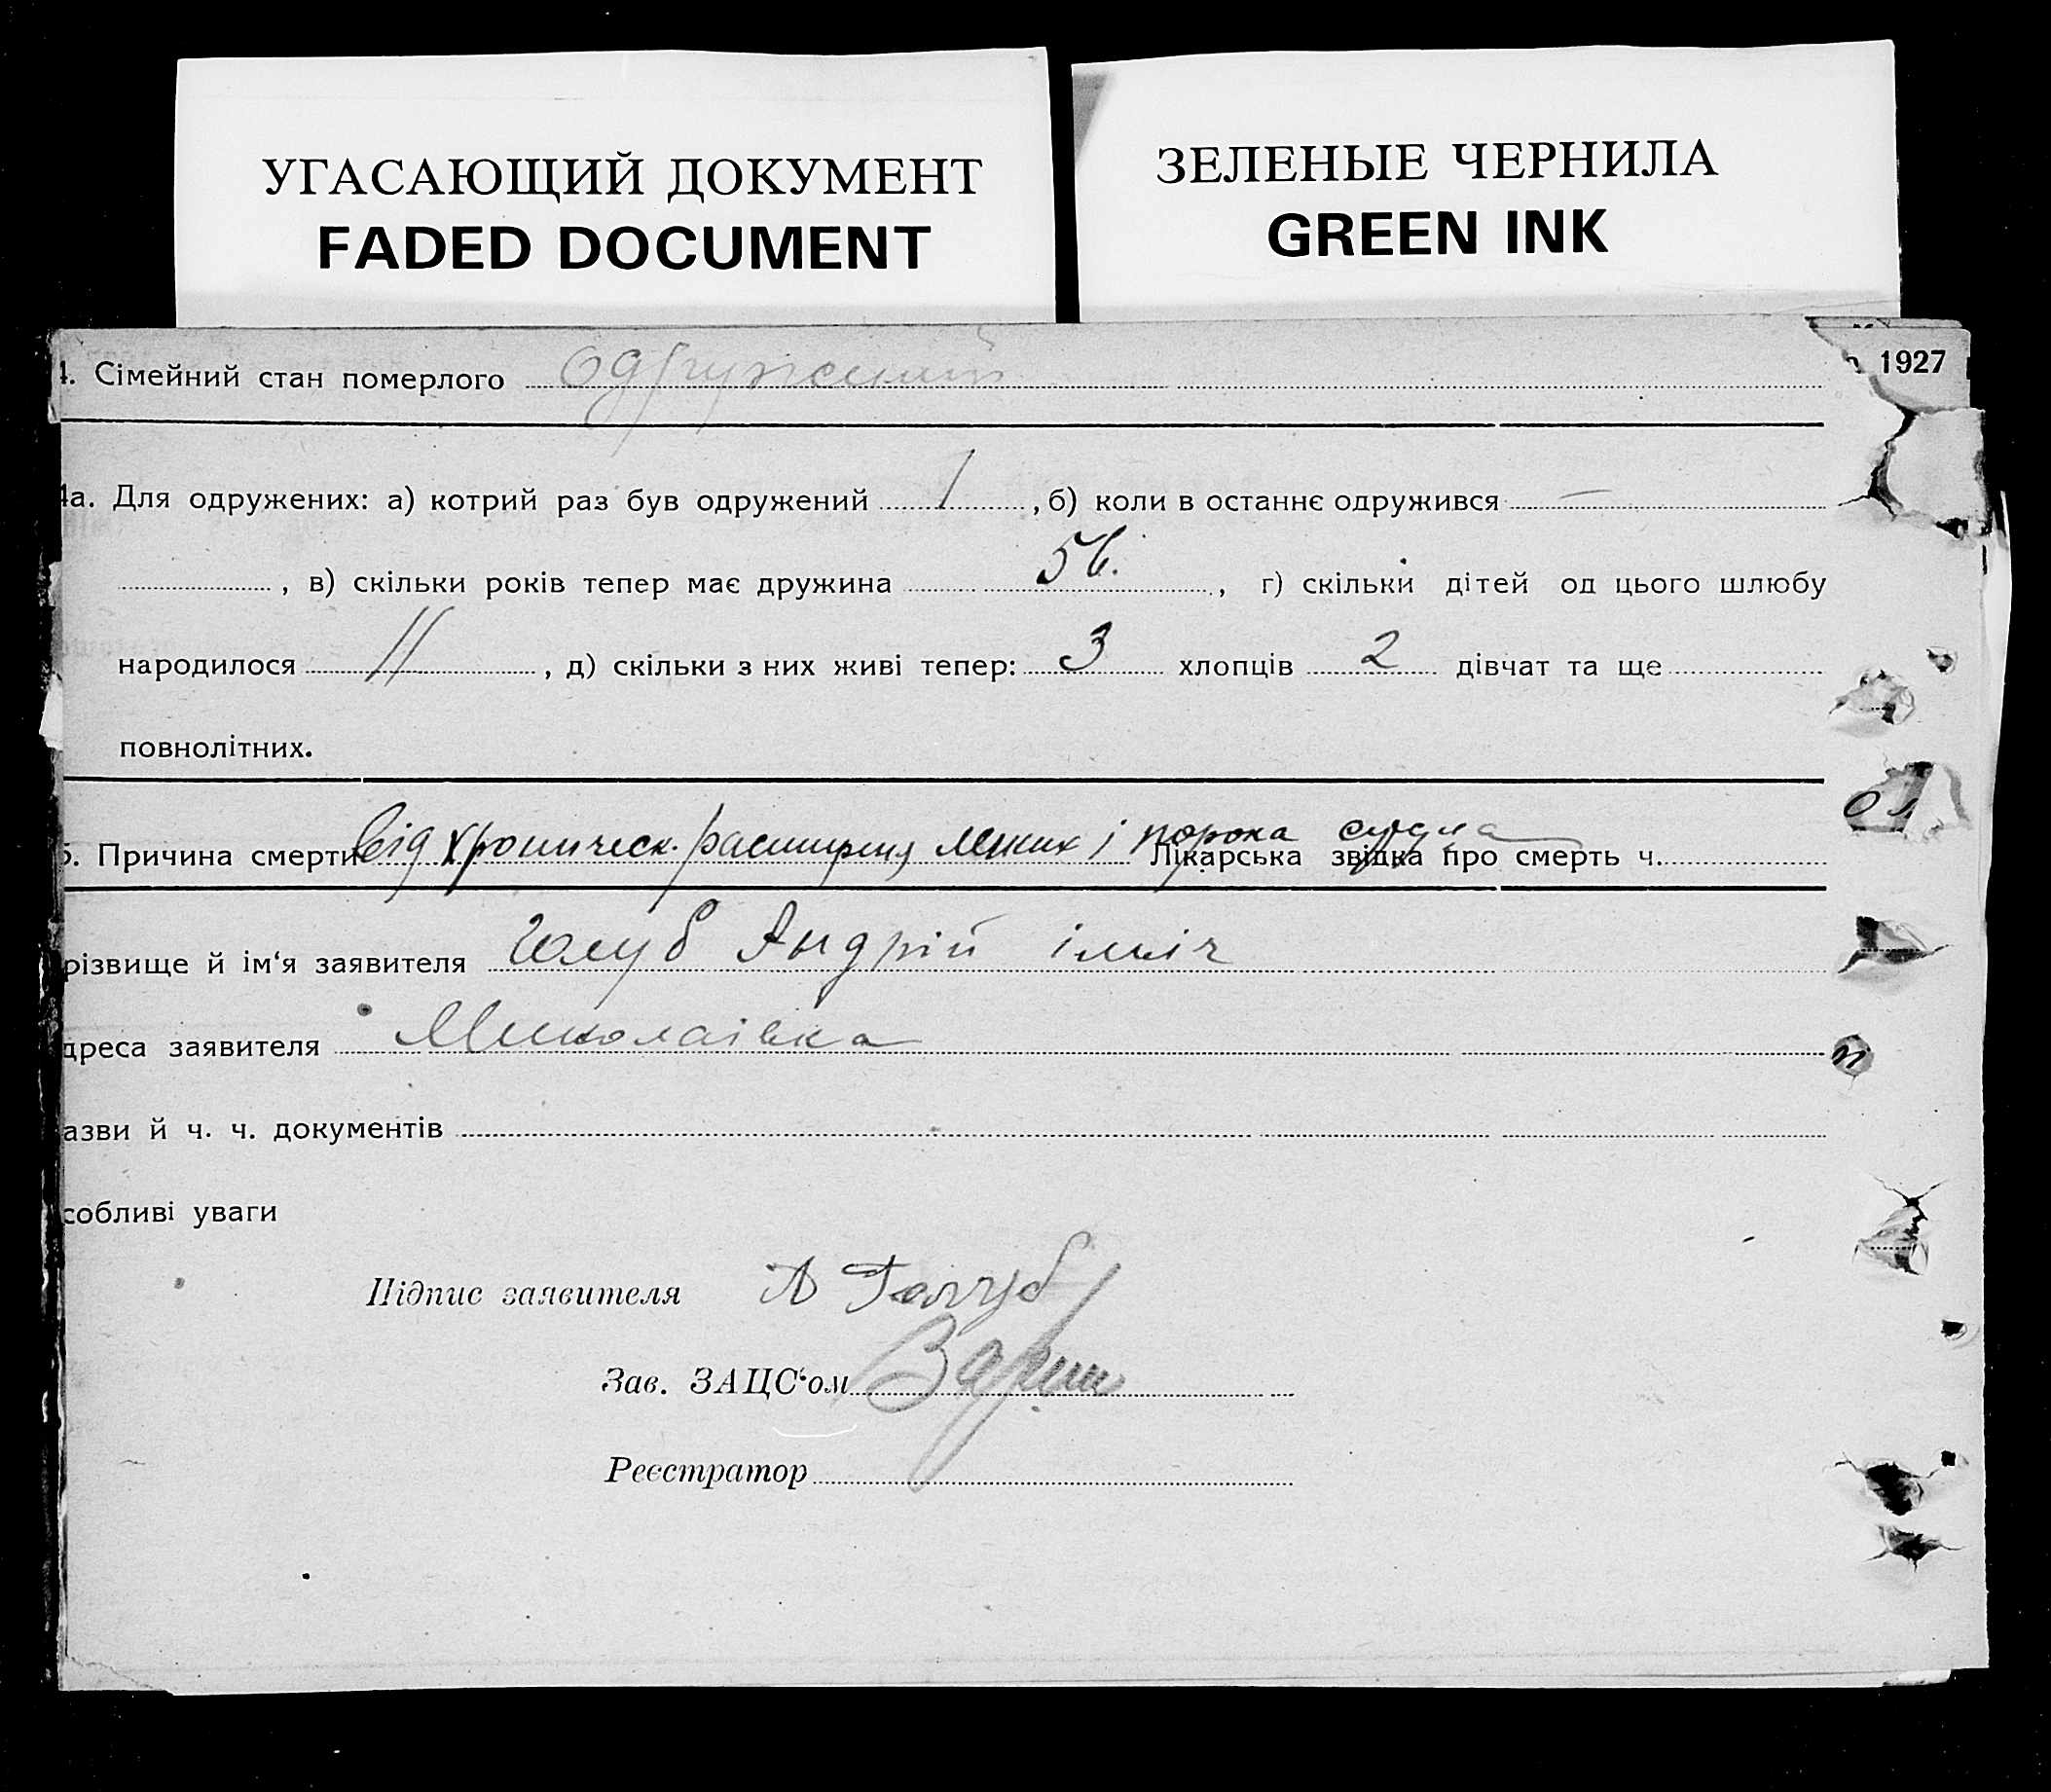 УГАСАЮЩИЙ ДОКУМЕНТ
FADED DOCUMENT
ЗЕЛЕНЫЕ ЧЕРНИЛА
GREEN INK
1927
4. Сімейний стан померлого одружений
4а. Для одружених: а) котрий раз був одружений 1, б) коли в останнє одружився —
, в) скільки років тепер має дружина 56., г) скільки дітей од цього шлюбу
народилося 11, д) скільки з них живі тепер: 3 хлопців 2 дівчат та ще
повнолітних.
5. Причина смерти від хроническ. расширения легких і порока сердца Лікарська звідка про смерть ч.
різвище й ім'я заявителя Голуб Андрій ілліч
дреса заявителя Миколаівка
азви й ч. ч. документів
собливі уваги
Підпис заявителя А Голуб
Зав. ЗАЦС'ом
Реєстратор